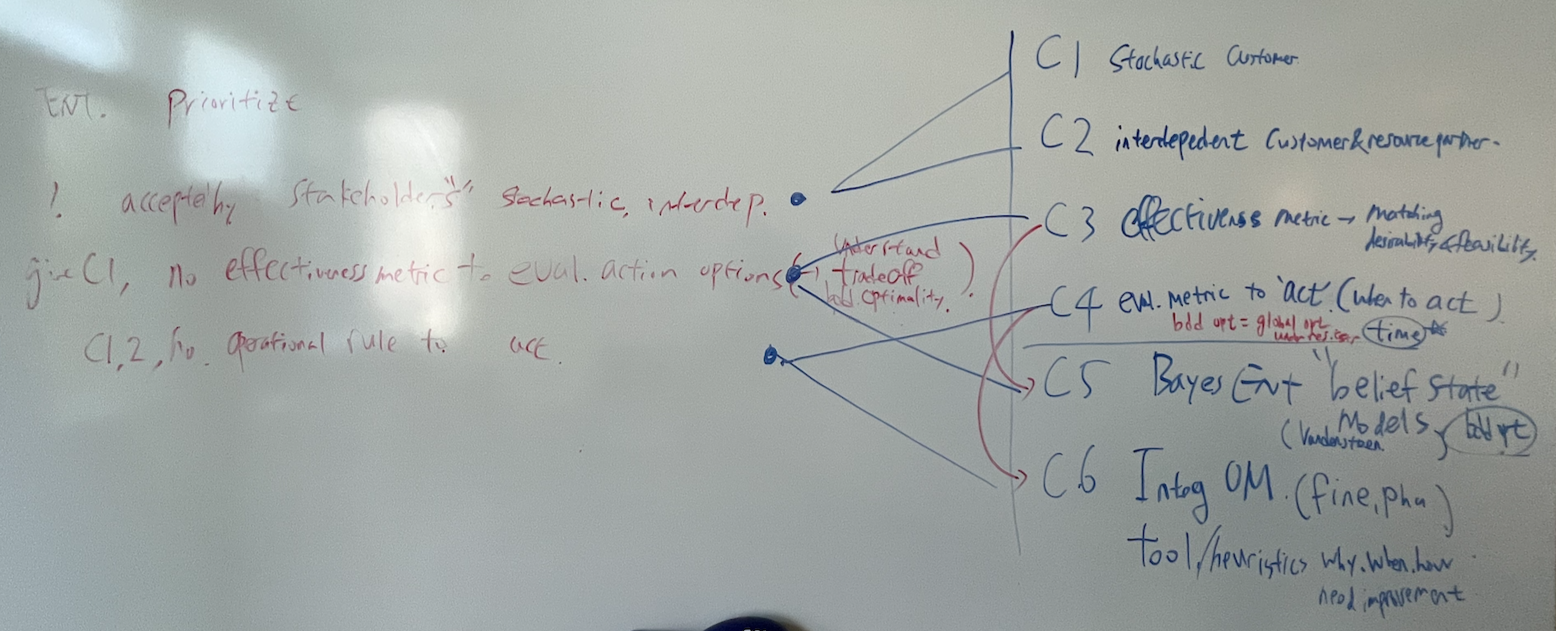 ENT. Prioritize
! accepte by Stakeholders "" Stochastic, interdep.
give C1, no effectiveness metric to eval. action options
(→ Understand
tradeoff
bdd. optimality. )
C1,2, no operational rule to act.
C1 Stochastic Customer
C2 interdepedent Customer&resource partner.
C3 effectivenss metric → Matching
desirability & feasibility
C4 eval. metric to 'act' (when to act)
bdd opt = global opt
time
C5 Bayes Ent "belief state"
Models
bdd opt
C6 Integ OM. (fine, pha)
tool/heuristics why.when.how
need improvement